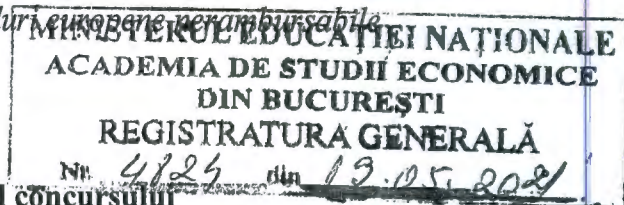 luri europene nerambursabile
MINISTERUL EDUCAȚIEI NAȚIONALE
ACADEMIA DE STUDII ECONOMICE
DIN BUCUREȘTI
REGISTRATURA GENERALĂ
Nr. 4124 din 19.05.2021
concursului